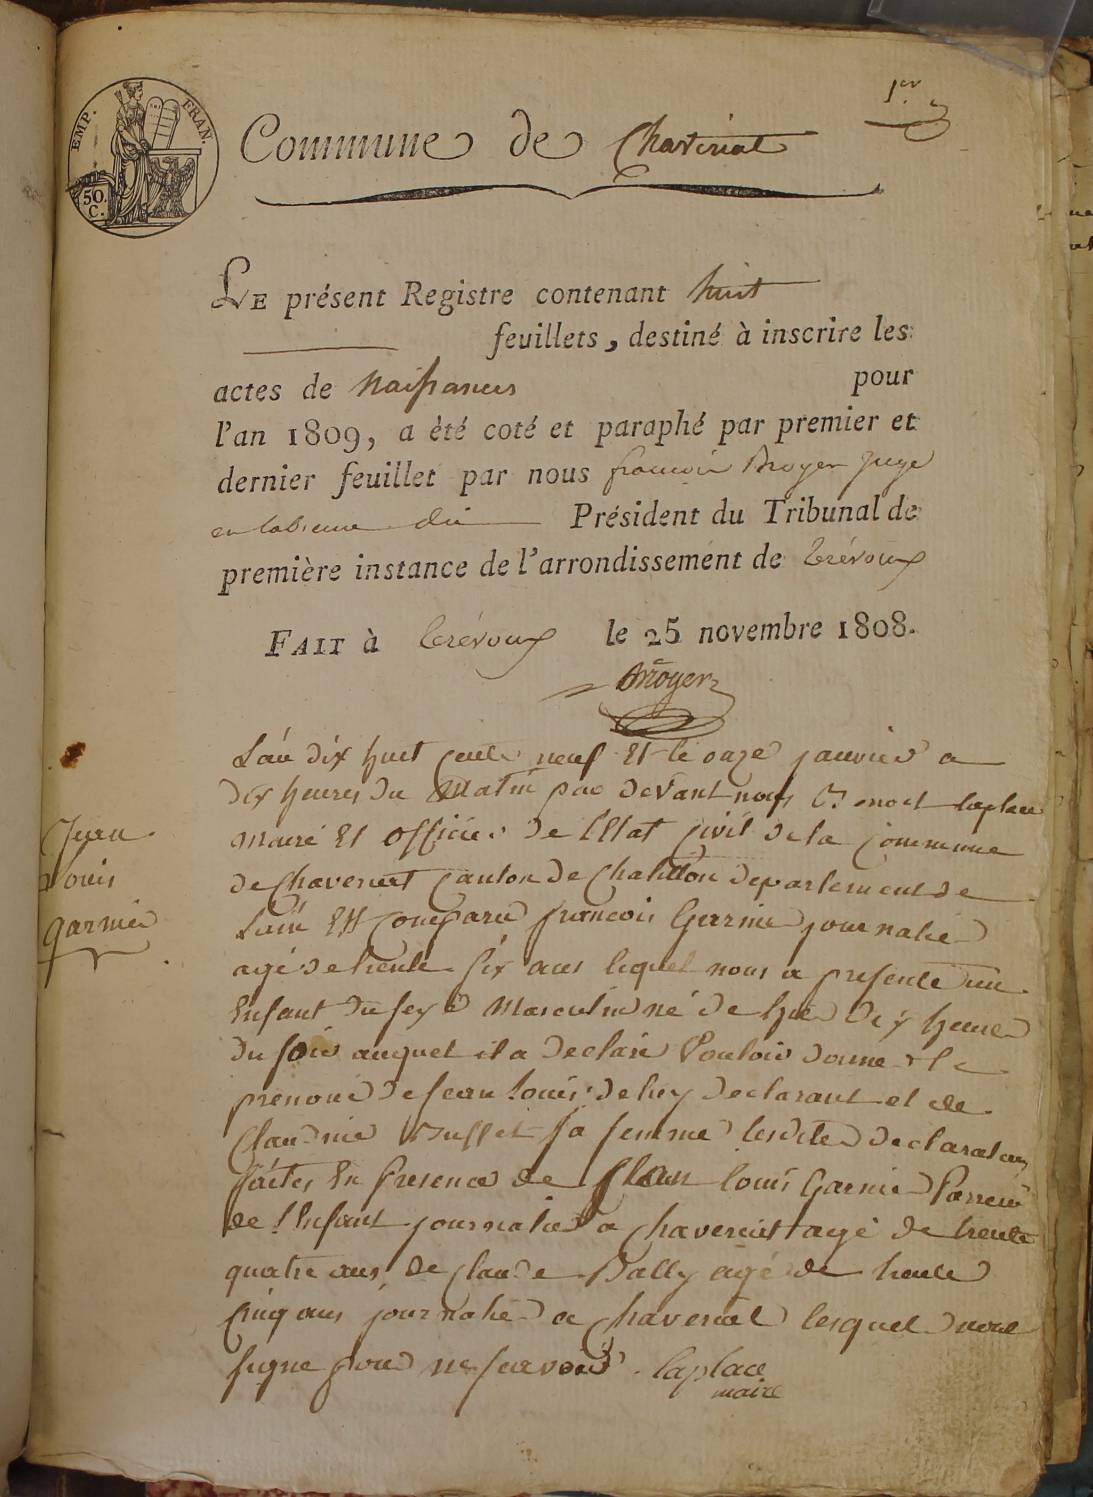 1er
EMP. FRAN.
50.
C.
Commune de Chaveriat
LE présent Registre contenant huit
feuillets, destiné à inscrire les
actes de Naissances pour
l'an 1809, a été coté et paraphé par premier et
dernier feuillet par nous françois Broyer Juge
Président du Tribunal de
première instance de l'arrondissement de trévoux
FAIT à trévoux le 25 novembre 1808.
Broyer
L'an dix huit cents neuf Et le onze janvier a
dix heures du Matin par devant nous laplace
Maire Et officier de l'Etat civil de la commune
de Chaveriat canton de Chatillon departement de
Lain Est comparu francois Garnier journalie
agé de trente six ans lequel nous a presenté un
Enfant du sexe Masculin né de hier dix heure
du soir auquel il a declaré Vouloir donner le
prenom de jean Louis de luy declarant et de
Claudine Buffet sa femme lesdites declarations
faites En presence de jean louis Garnier Parrein
de l'Enfant journalier a chaveriat agé de trente
quatre ans de claude Bally agé de trente
cinq ans journalie a chaveriat lesquel nont
signe pour ne scavoir . laplace
maire
Jean
Louis
garnier